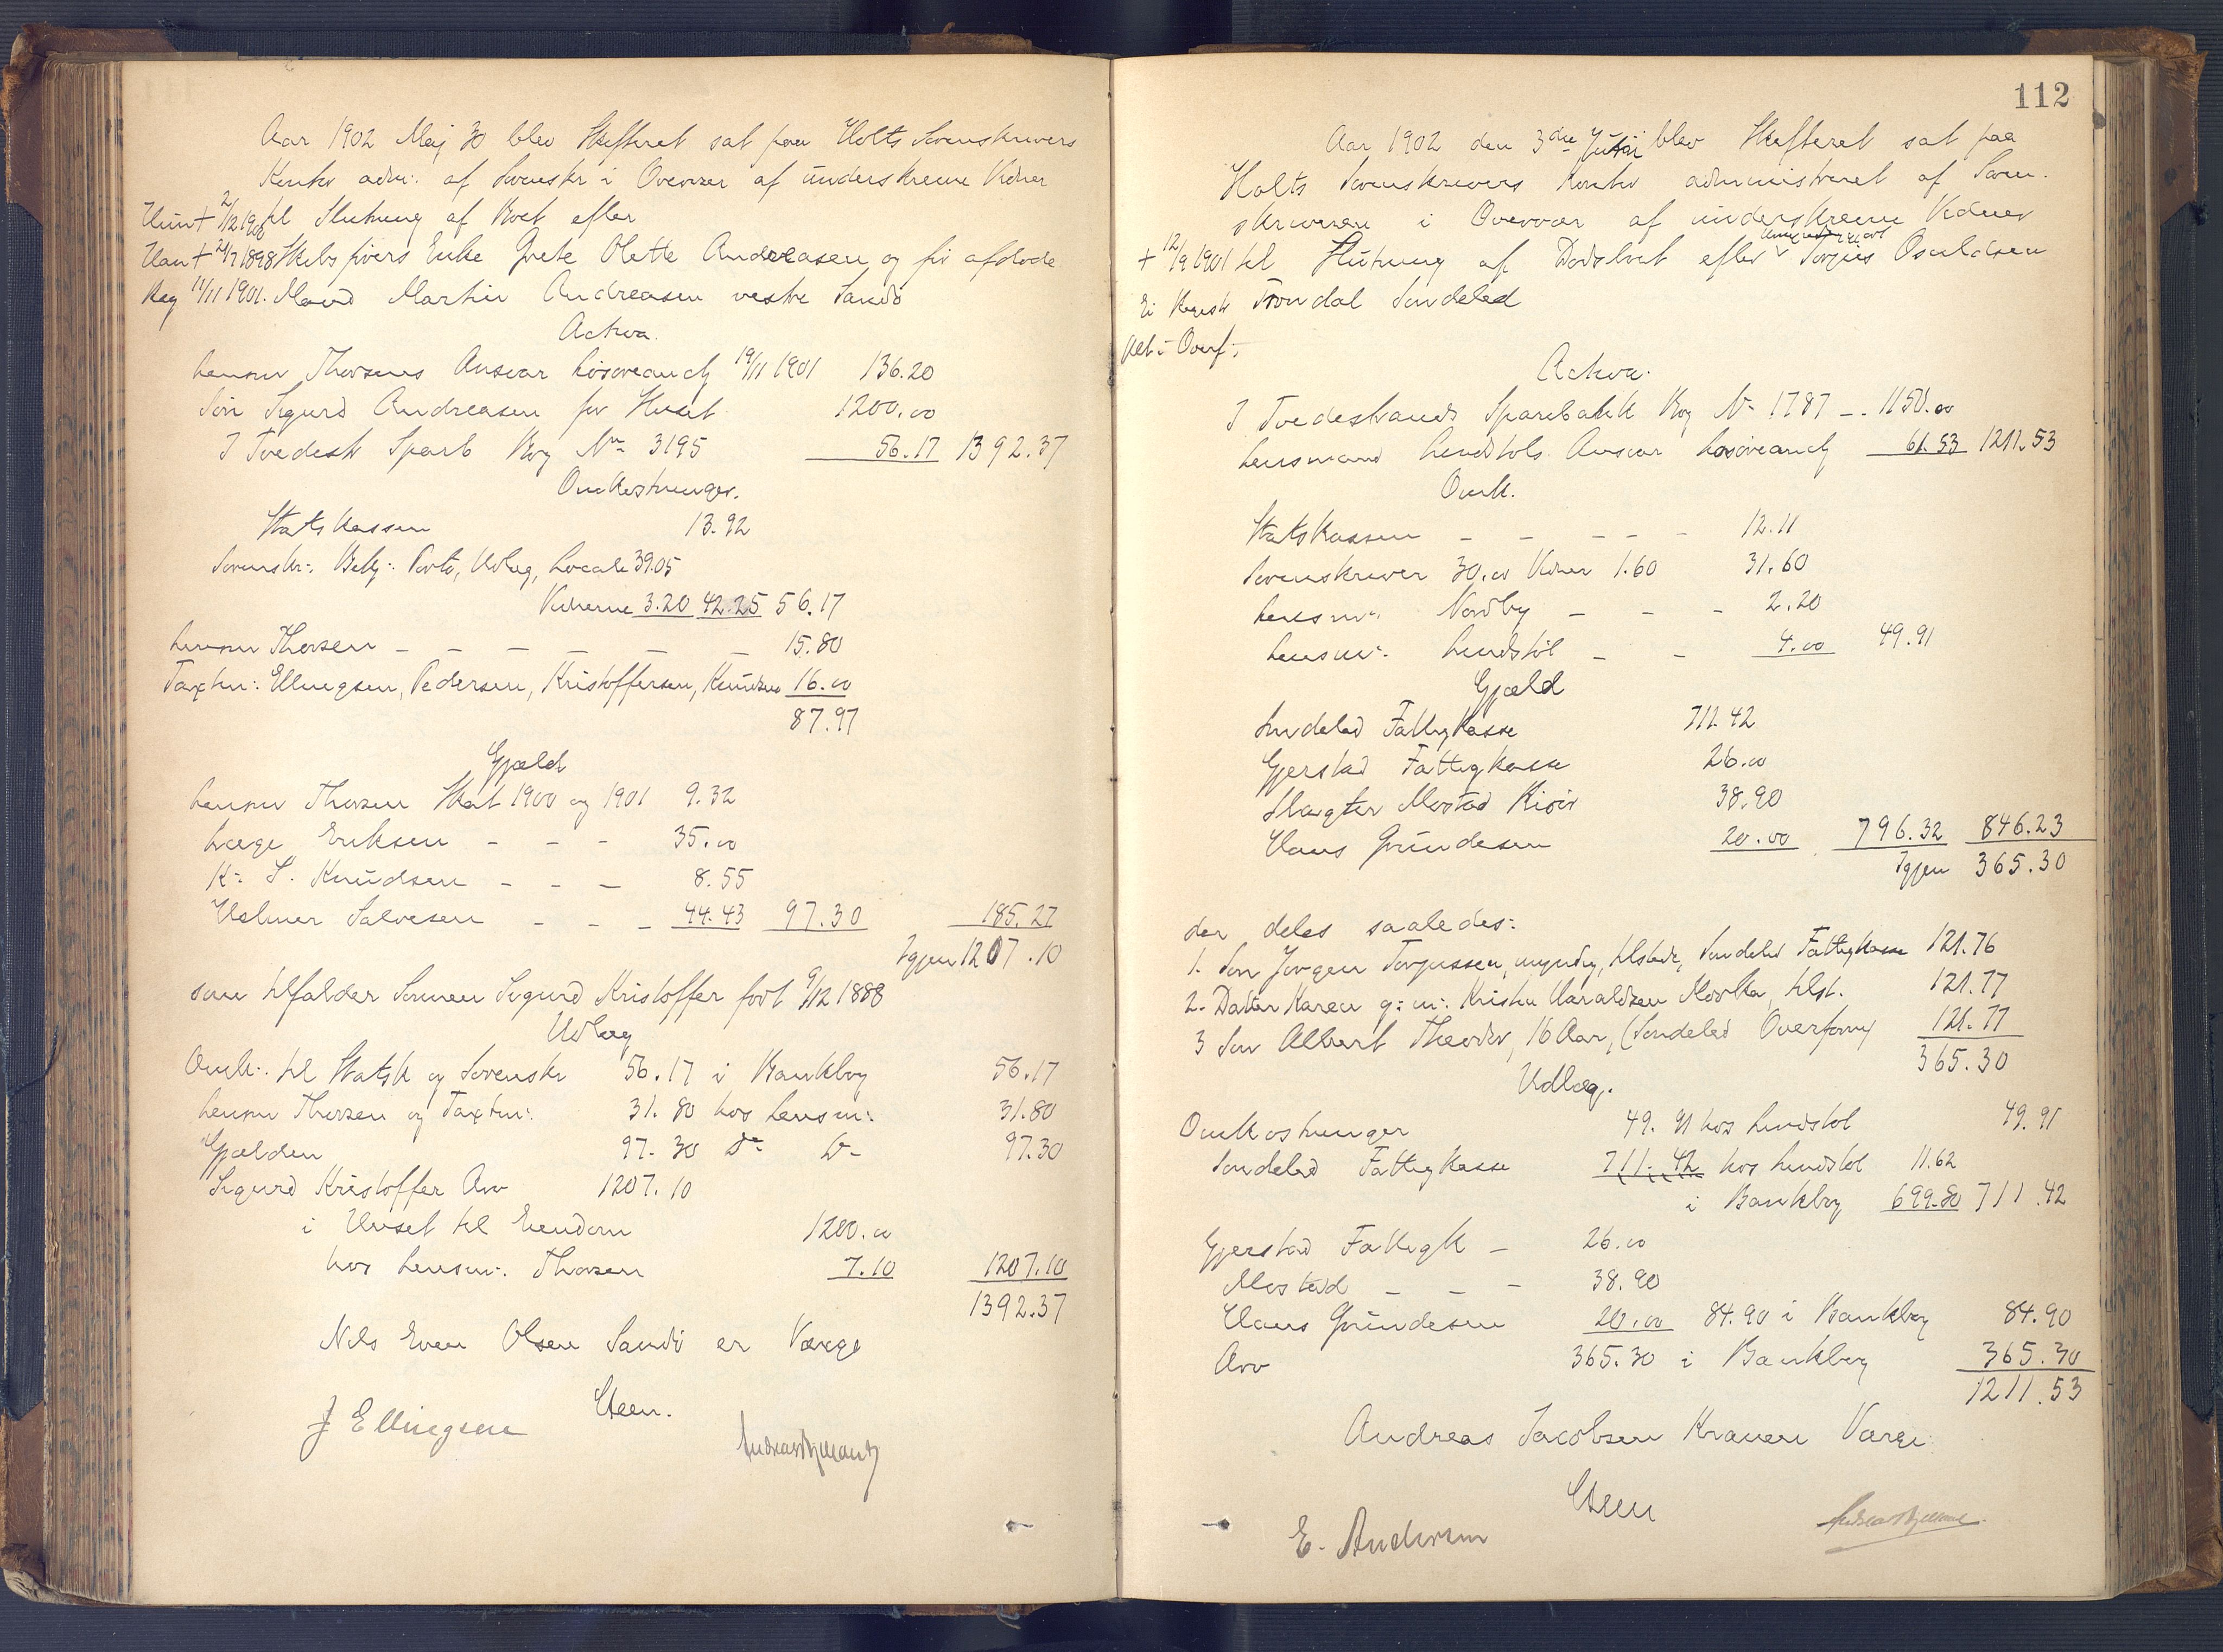 Aar 1902 Maj 30 blev Skifteret sat paa Holts Sorenskrivers
Kontor adm: af Sorenskr i Overvær af underskrevne Vidner
Hun + 2/12 1900 til Slutning af Boet efter
Han + 24/7 1898 Skibsførers Enke Grete Olette Andreasen og før afdøde
Reg 11/11 1901. Mand Martin Andreasen vestre Sandø
Activa.
Lensm Thorsens Ansvar Løsøreauch 19/11 1901 136.20
Søn Sigurd Andreasen for Huset 1200.00
I Tvedestr Sparb Bog No 3195 56.17 1392.37
Omkostninger.
Statskassen 13.92
Sorenskr: Beh: Porto, Udlæg, Locale 39.05
Vidnerne 3.20 42.25 56.17
Lensm Thorsen – – – – – – 15.80
Taxtm: Ellingsen, Pedersen, Kristoffersen, Knudsen 16.00
87.97
Gjæld
Lensm Thorsen Skat 1900 og 1901 9.32
Læge Eriksen – – – 35.00
K: S. Knudsen – – – 8.55
Helmer Salvesen – – – 44.43 97.30 185.27
Igjen 1207.10
som tilfalder Sønnen Sigurd Kristoffer født 9/12 1888
Udlæg
Omk: til Statsk og Sorenskr 56.17 i Bankbog 56.17
Lensm Thorsen og Taxtm: 31.80 hos Lensm: 31.80
Gjælden 97.30 Do Do 97.30
Sigurd Kristoffer Arv 1207.10
i Huset til Eiendom 1200.00
hos Lensm: Thorsen 7.10 1207.10
1392.37
Nils Even Olsen Sandø er Værge
Steen.
J Ellingsen
112
Aar 1902 den 3die Juni blev Skifteret sat paa
Holts Sorenskrivers Kontor administreret af Soren-
skriveren i Overvær af underskrevne Vidner
+ 12/9 1901 til Slutning af Dødsboet efter Torjus Osuldsen
Ei Registr Trondal Søndeled
Activa.
I Tvedestrands Sparebank Bog No 1787 – 1150.00
Lensmand Lindstøls Ansvar Løsøreauch 61.53 1211.53
Omk.
Statskassen – – – – – 12.11
Sorenskriver 30.00 Vidner 1.60 31.60
Lensm: Nordby – – – 2.20
Lensm: Lindstøl – – 4.00 49.91
Gjæld
Søndeled Fattigkasse 711.42
Gjerstad Fattigkasse 26.00
Slagter Mostad Risør 38.90
Hans Grundesen 20.00 796.32 846.23
Igjen 365.30
der deles saaledes:
1. Søn Jørgen Torjussen, myndig, tilstede, Søndeled Fattigkasse 121.76
2. Datter Karen g: m: Kristen Haraldsen, tilst. 121.77
3 Søn Albert Theodor, 16 Aar, (Søndeled Overform) 121.77
365.30
Udlæg.
Omkostninger 49.91 hos Lindstøl 49.91
Søndeled Fattigkasse 711.42 hos Lindstøl 11.62
i Bankbog 699.80 711.42
Gjerstad Fattigk – 26.00
Mostad – – – 38.90
Hans Grundesen 20.00 84.90 i Bankbog 84.90
Arv 365.30 i Bankbog 365.30
1211.53
Andreas Jacobsen Kranen Værge
Steen
E. Andersen